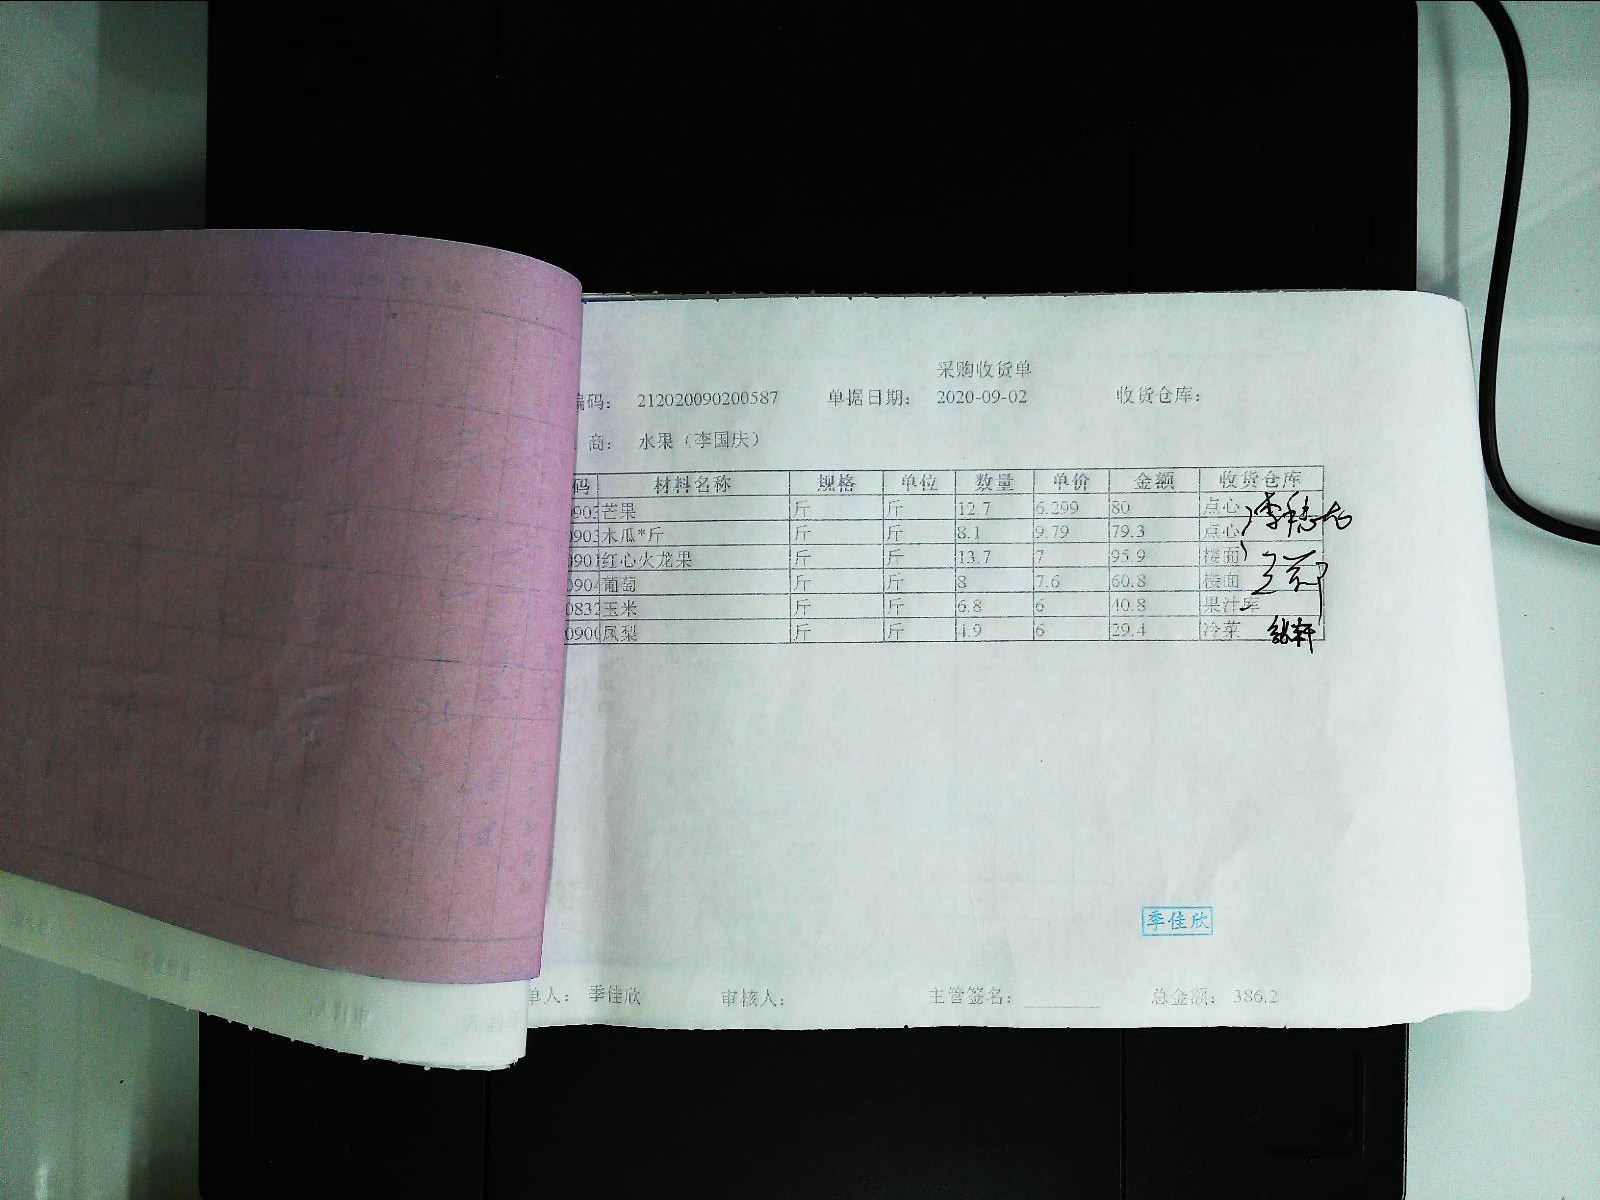 采购收货单
编码： 212020090200587 单据日期： 2020-09-02 收货仓库：
商： 水果（李国庆）
码 材料名称 规格 单位 数量 单价 金额 收货仓库
0903 芒果 斤 斤 12.7 6.299 80 点心
0903 木瓜*斤 斤 斤 8.1 9.79 79.3 点心
0901 红心火龙果 斤 斤 13.7 7 95.9 楼面
0904 葡萄 斤 斤 8 7.6 60.8 楼面
0832 玉米 斤 斤 6.8 6 40.8 果汁库
0900 凤梨 斤 斤 4.9 6 29.4 冷菜
季佳欣
单人： 季佳欣 审核人： 主管签名： 总金额： 386.2